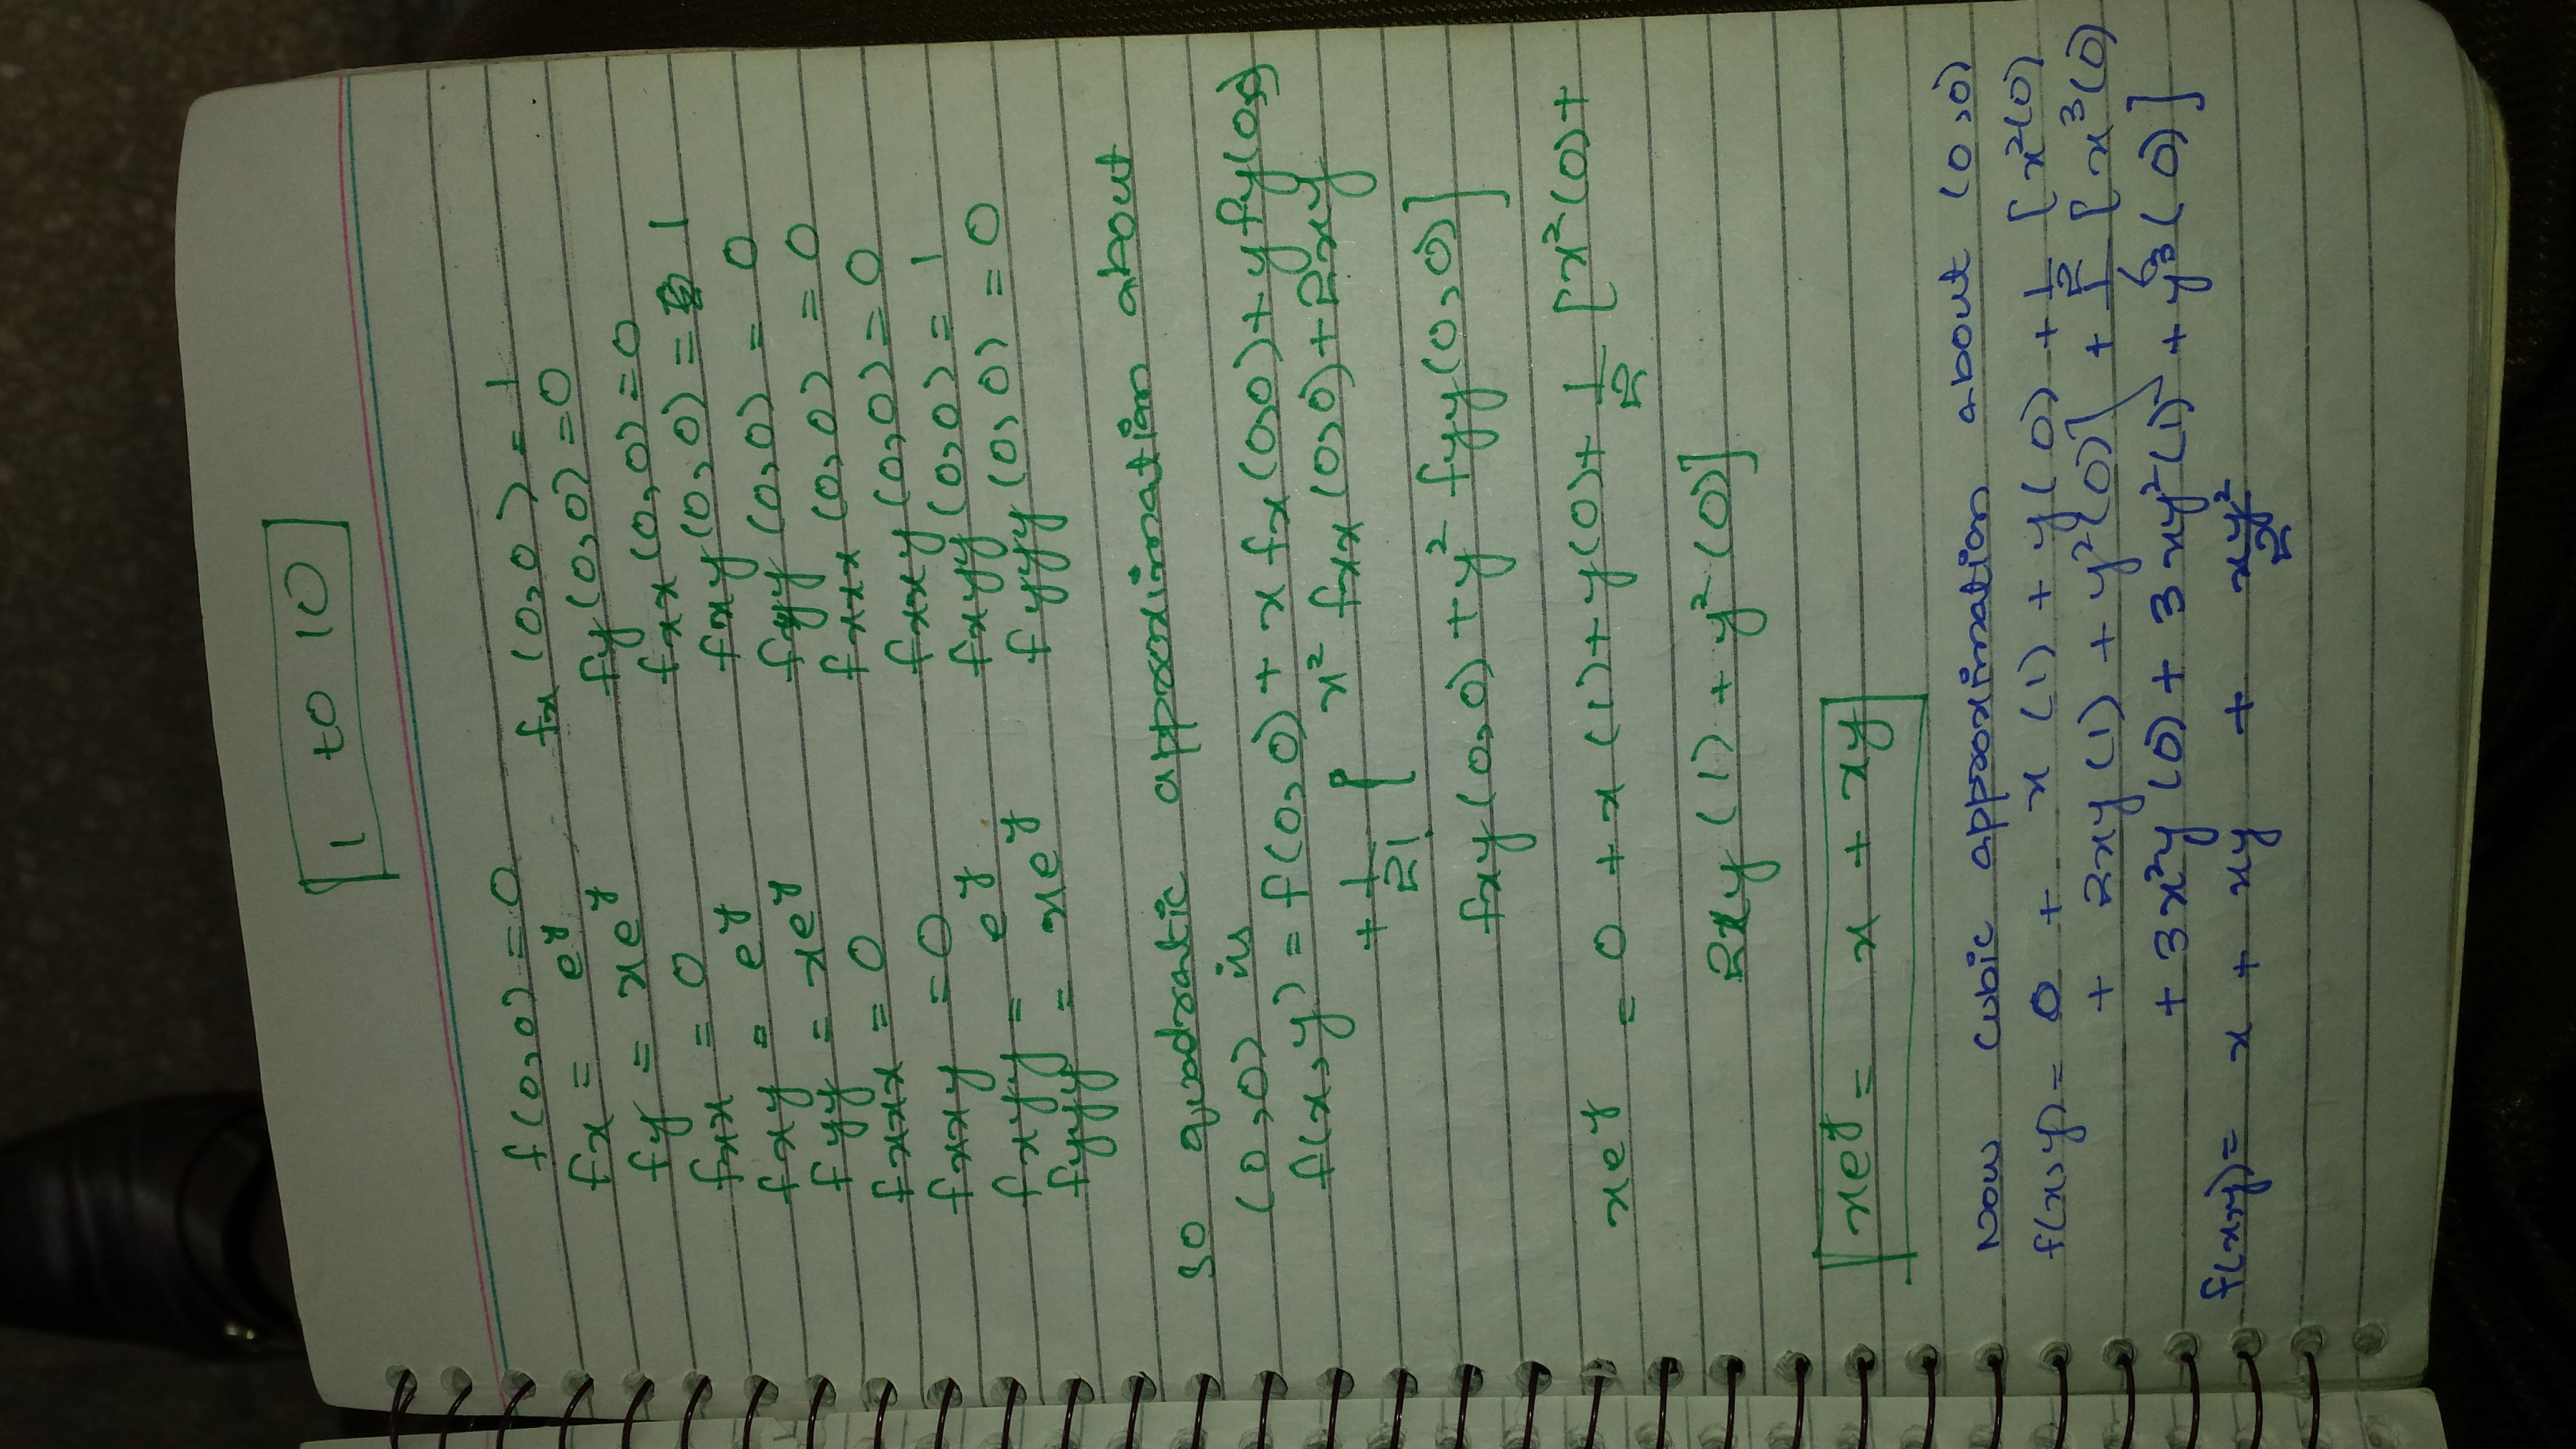 1 to 10
f(0,0) = 0
fx = e^y fx(0,0) = 1
fy = xe^y fy(0,0) = 0
fxx = 0 fxx(0,0) = 0
fxy = e^y fxy(0,0) = 1
fyy = xe^y fyy(0,0) = 0
fxxx = 0 fxxx(0,0) = 0
fxxy = 0 fxxy(0,0) = 0
fxyy = e^y fxyy(0,0) = 1
fyyy = xe^y fyyy(0,0) = 0
So quadratic approximation about
(0,0) is
f(x,y) = f(0,0) + x fx(0,0) + y fy(0,0)
+ 1/2! [ x² fxx(0,0) + 2xy
fxy(0,0) + y² fyy(0,0)]
xe^y = 0 + x(1) + y(0) + 1/2 [x²(0) +
2xy(1) + y²(0)]
xe^y = x + xy
Now cubic approximation about (0,0)
f(x,y) = 0 + x(1) + y(0) + 1/2 [x²(0)
+ 2xy(1) + y²(0)] + 1/6 [x³(0)
+ 3x²y(0) + 3xy²(1) + y³(0)]
f(x,y) = x + xy + xy²/2